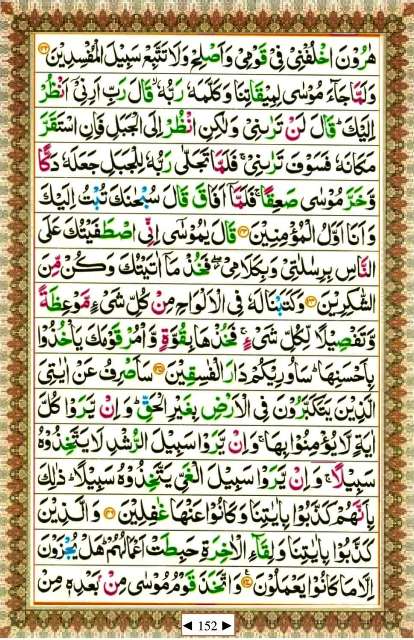 هٰرُوۡنَ اخۡلُفۡنِىۡ فِىۡ قَوۡمِىۡ وَاَصۡلِحۡ وَلَا تَتَّبِعۡ سَبِيۡلَ الۡمُفۡسِدِيۡنَ ﴿۱۴۲﴾
وَلَمَّا جَآءَ مُوۡسٰى لِمِيۡقَاتِنَا وَكَلَّمَهٗ رَبُّهٗ ۙ قَالَ رَبِّ اَرِنِىۡۤ اَنۡظُرۡ
اِلَيۡكَ ؕ قَالَ لَنۡ تَرٰٮنِىۡ وَلٰـكِنِ انْظُرۡ اِلَى الۡجَـبَلِ فَاِنِ اسۡتَقَرَّ
مَكَانَهٗ فَسَوۡفَ تَرٰٮنِىۡ ۚ فَلَمَّا تَجَلّٰى رَبُّهٗ لِلۡجَبَلِ جَعَلَهٗ دَكًّا
وَّخَرَّ مُوۡسٰى صَعِقًا ۚ فَلَمَّاۤ اَفَاقَ قَالَ سُبۡحٰنَكَ تُبۡتُ اِلَيۡكَ
وَاَنَا اَوَّلُ الۡمُؤۡمِنِيۡنَ ﴿۱۴۳﴾ قَالَ يٰمُوۡسٰٓى اِنِّى اصۡطَفَيۡتُكَ عَلَى
النَّاسِ بِرِسٰلٰتِىۡ وَ بِكَلَامِىۡ ۖ فَخُذۡ مَاۤ اٰتَيۡتُكَ وَكُنۡ مِّنَ
الشّٰكِرِيۡنَ ﴿۱۴۴﴾ وَكَتَبۡنَا لَهٗ فِى الۡاَلۡوَاحِ مِنۡ كُلِّ شَىۡءٍ مَّوۡعِظَةً
وَّتَفۡصِيۡلًا لِّـكُلِّ شَىۡءٍ ۚ فَخُذۡهَا بِقُوَّةٍ وَّاۡمُرۡ قَوۡمَكَ يَاۡخُذُوۡا
بِاَحۡسَنِهَا ؕ سَاُورِيۡكُمۡ دَارَ الۡفٰسِقِيۡنَ ﴿۱۴۵﴾ سَاَصۡرِفُ عَنۡ اٰيٰتِىَ
الَّذِيۡنَ يَتَكَبَّرُوۡنَ فِى الۡاَرۡضِ بِغَيۡرِ الۡحَـقِّ ؕ وَاِنۡ يَّرَوۡا كُلَّ
اٰيَةٍ لَّا يُؤۡمِنُوۡا بِهَا ۚ وَاِنۡ يَّرَوۡا سَبِيۡلَ الرُّشۡدِ لَا يَتَّخِذُوۡهُ
سَبِيۡلًا ۚ وَّاِنۡ يَّرَوۡا سَبِيۡلَ الۡغَىِّ يَتَّخِذُوۡهُ سَبِيۡلًا ؕ ذٰلِكَ
بِاَنَّهُمۡ كَذَّبُوۡا بِاٰيٰتِنَا وَكَانُوۡا عَنۡهَا غٰفِلِيۡنَ ﴿۱۴۶﴾ وَالَّذِيۡنَ
كَذَّبُوۡا بِاٰيٰتِنَا وَلِقَآءِ الۡاٰخِرَةِ حَبِطَتۡ اَعۡمَالُهُمۡ ؕ هَلۡ يُجۡزَوۡنَ
اِلَّا مَا كَانُوۡا يَعۡمَلُوۡنَ ﴿۱۴۷﴾ وَاتَّخَذَ قَوۡمُ مُوۡسٰى مِنۡۢ بَعۡدِهٖ مِنۡ
◄ 152 ►